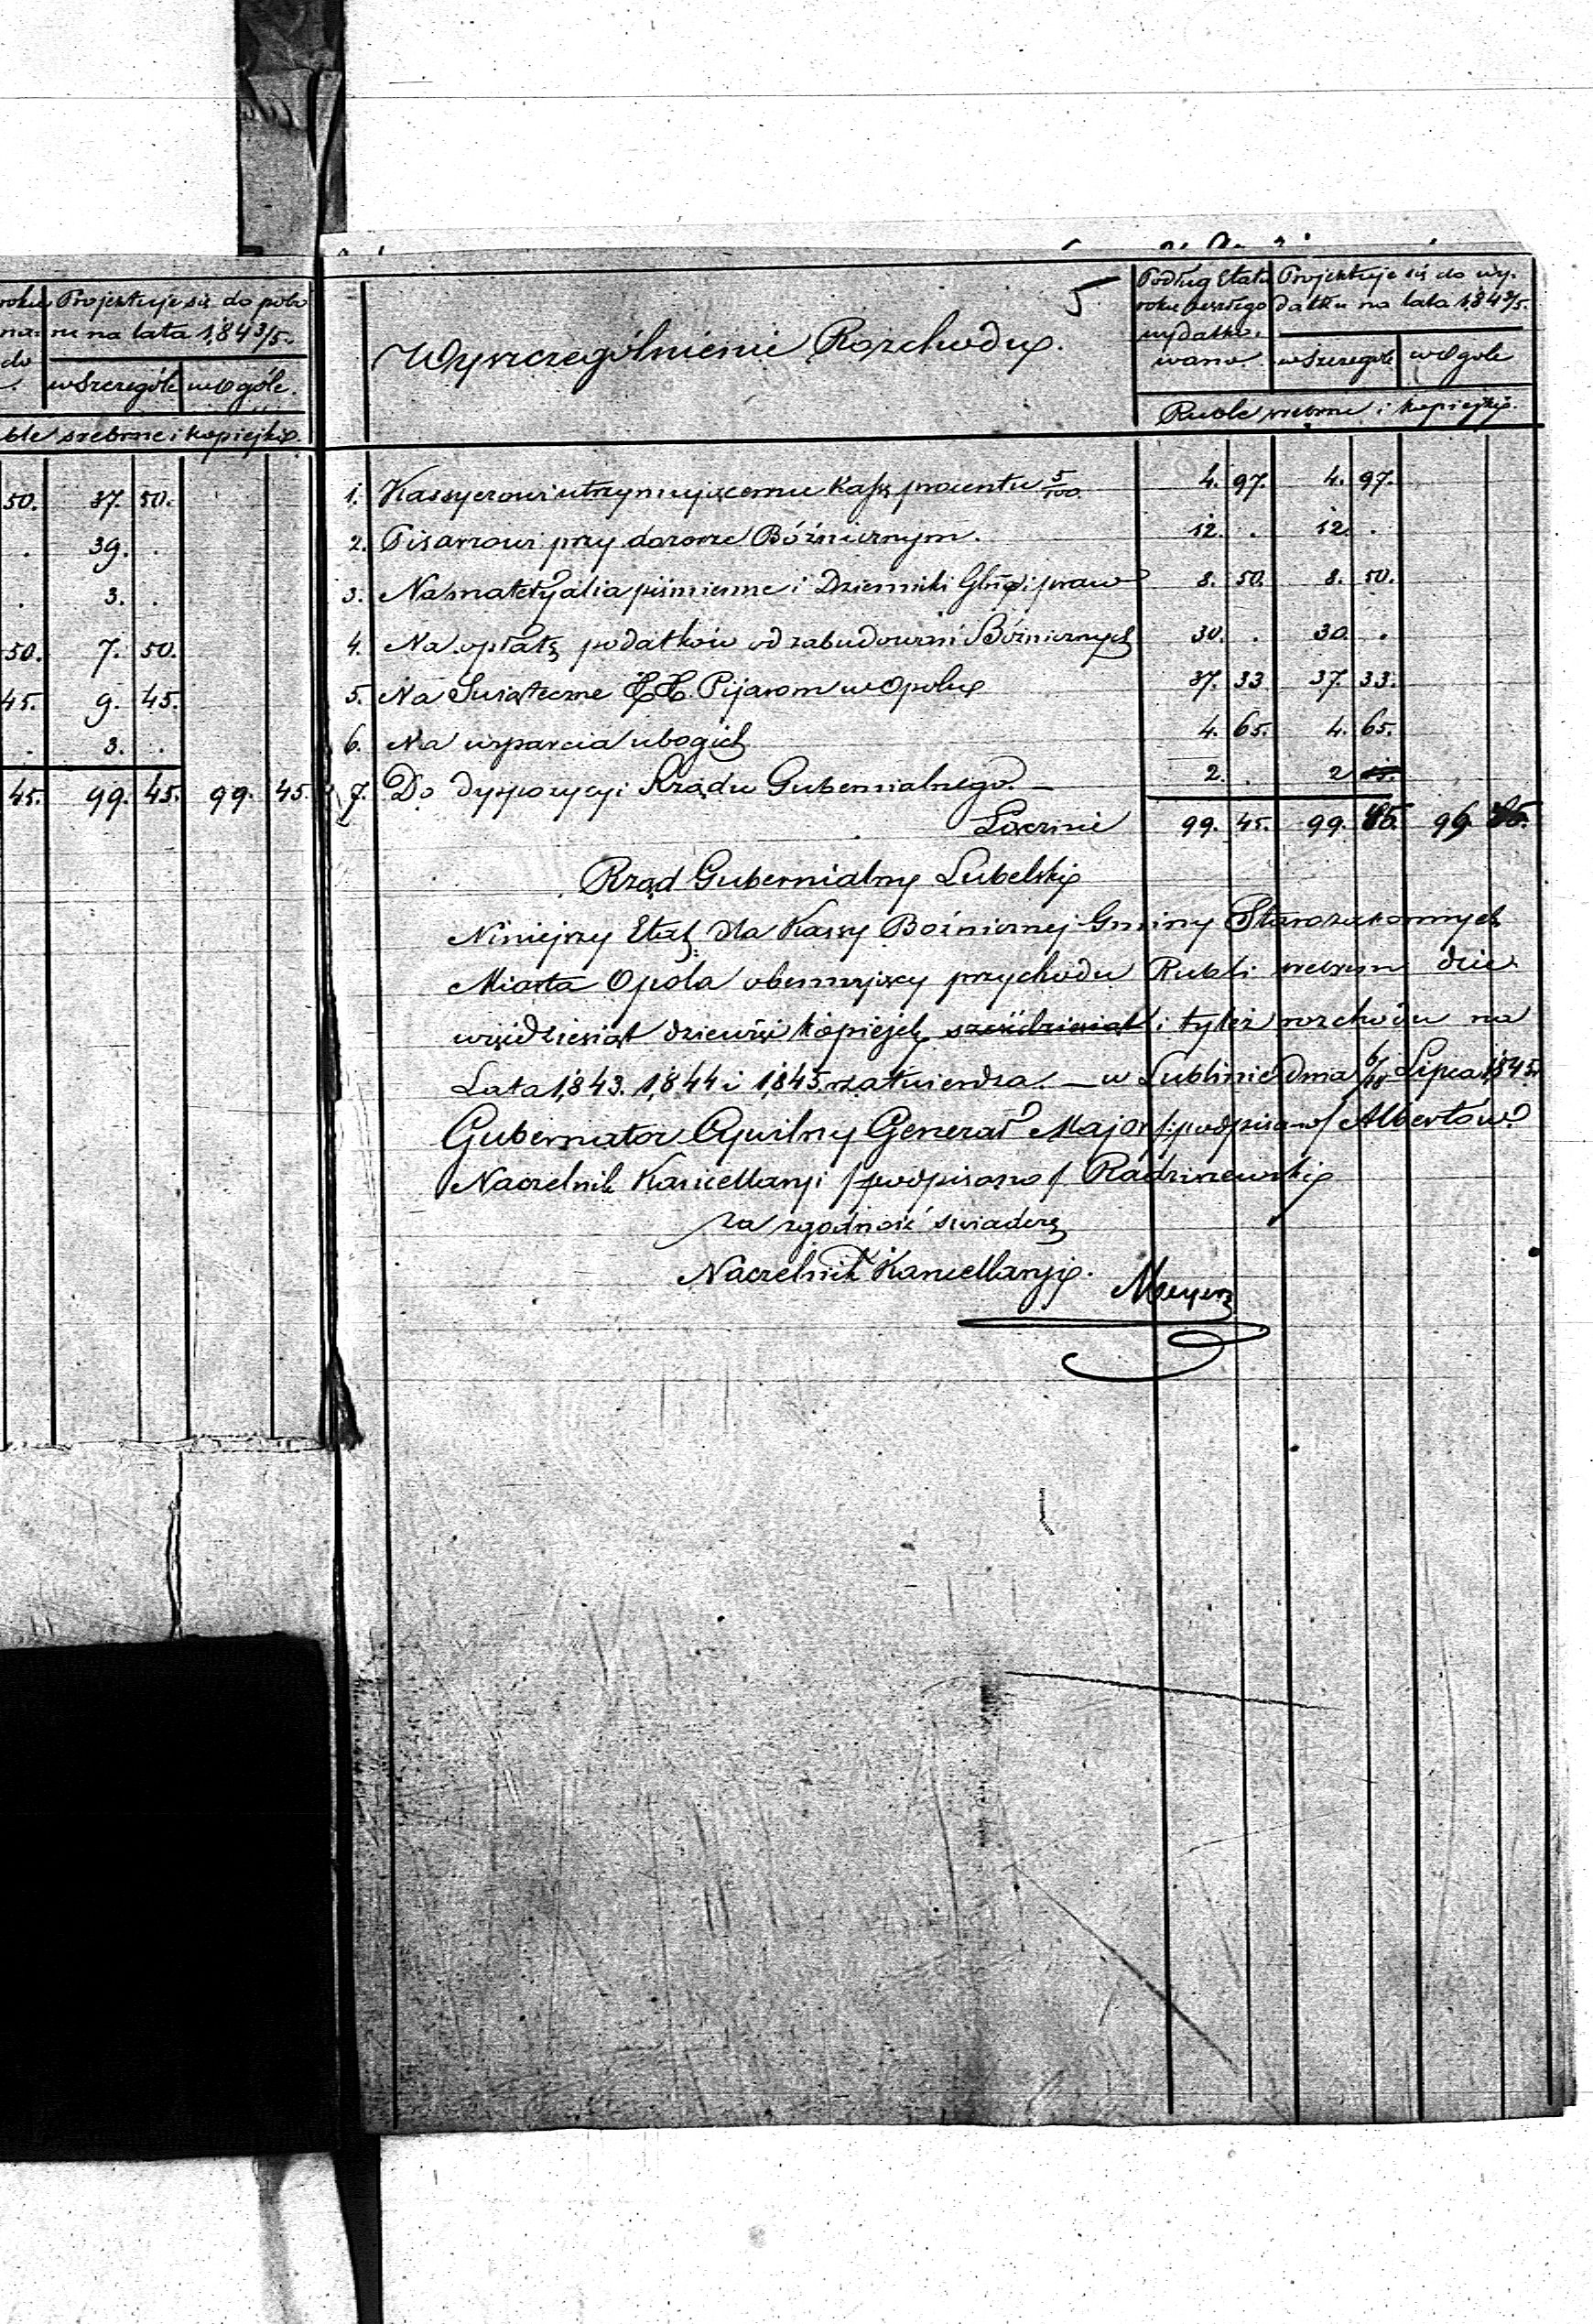 roku Projektuje się do pobo
na- ru na lata 1843/5.
do
w Szczególe w Ogóle.
ble srebrne i kopiejki.
50. 37. 50.
. 39. .
. 3. .
50. 7. 50.
45. 9. 45.
. 3. .
45. 99. 45. 99. 45.
5
Wyszczególnienie Rozchodu.
Podług Etatu roku zeszłego wydatko- wano.
Projektuje się do wy- datku na lata 1843/5.
w Szczególe w Ogole
Ruble srebrne i kopiejki.
1. Kassyerowi utrzymującemu Kassę procentu 5/100 4. 97. 4. 97.
2. Pisarzowi przy dozorze Bóźnicznym. 12. . 12. .
3. Na matetyalia piśmienne i Dzienniki Gbr. i praw 8. 50. 8. 50.
4. Na opłatę podatków od zabudowań Bóźnicznych 30. . 30. .
5. Na Swiąteczne XX. Pijarom w Opolu 37. 33 37. 33.
6. Na wsparcia ubogich 4. 65. 4. 65.
7. Do dyspozycyi Rządu Gubernialnego. — 2. . 2
Łącznie 99. 45. 99. 99
Rząd Gubernialny Lubelski
Niniejszy Etat dla Kassy Bóźnicznej Gminy Starozakonnych
Miasta Opola obejmujący przychodu Rubli srebrem dzie
więdziesiąt dziewięć kopiejek i tyleż rozchodu na
Lata 1843. 1844 i 1845. zatwierdza. — w Lublinie dnia 6/18 Lipca 1845.
Gubernator Cywilny Generał Major /:podpisano/ Albertów
Naczelnik Kancellaryi /podpisano/ Radziszewski
za zgodność swiadczę
Naczelnik Kancellaryi. Meyer